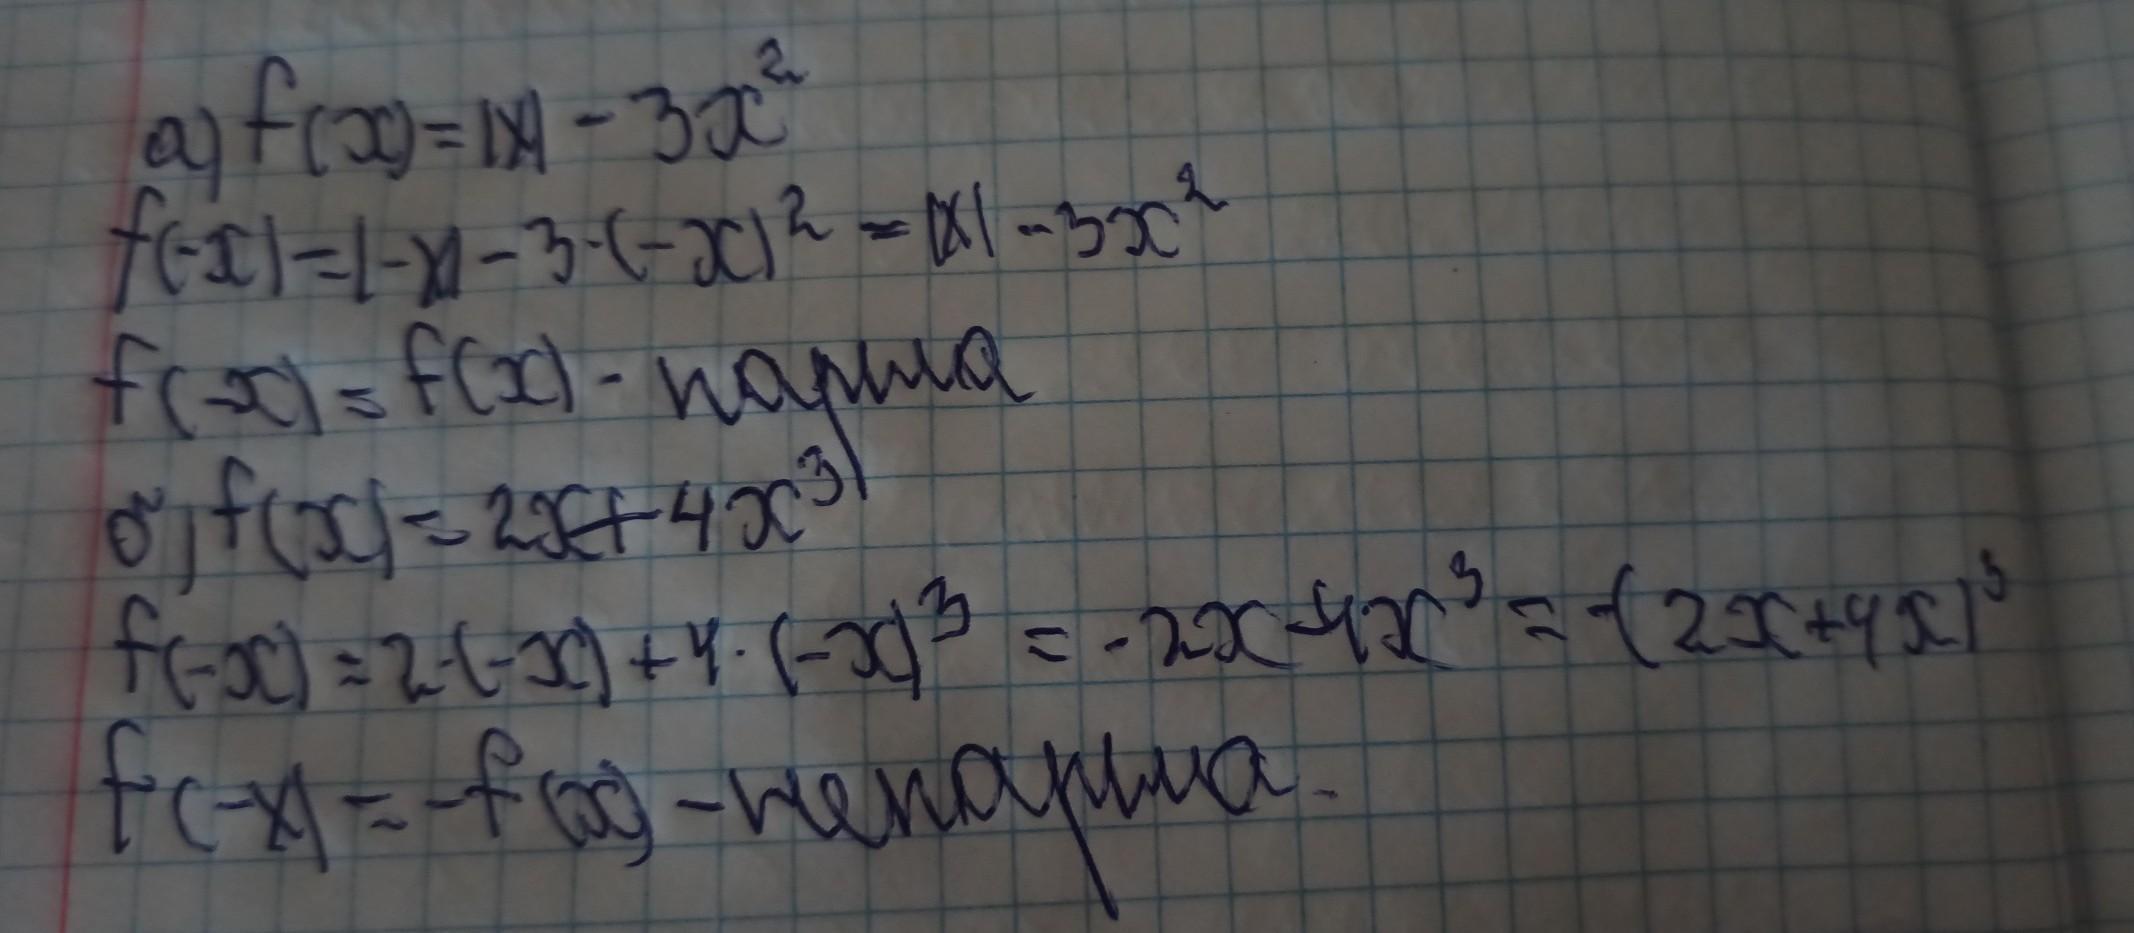 а) f(x)=|x| - 3x²
f(-x)=|-x| - 3·(-x)² = |x| - 3x²
f(-x) = f(x) - парна
б) f(x) = 2x+4x³
f(-x) = 2·(-x)+4·(-x)³ = -2x-4x³ = -(2x+4x)³
f(-x) = -f(x) - непарна.